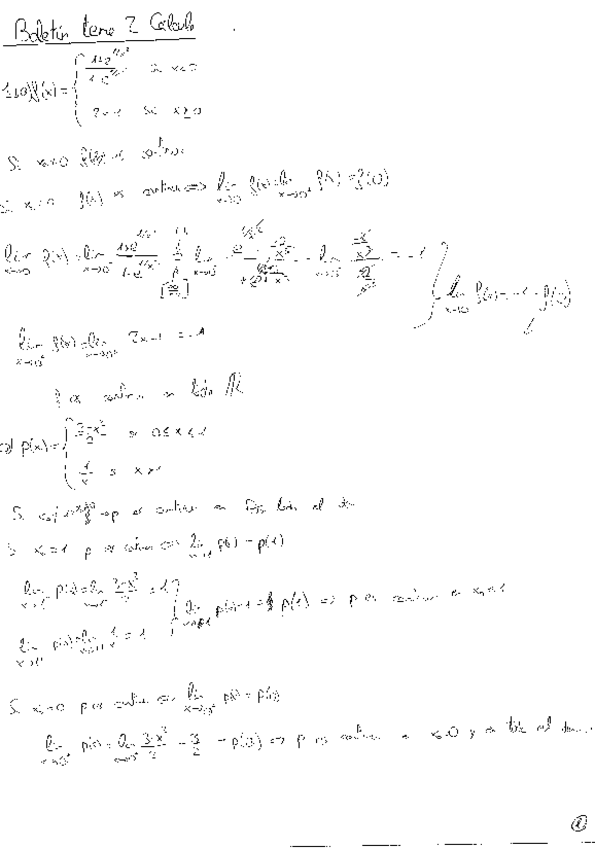 Boletín tema 2 Cálculo
f(x) = { (1+e^{1/x²})/(1-e^{1/x²}) si x<0
2x-1 si x≥0
Si x≠0 f(x) es continua
Si x₀=0 f(x) es continua ⇔ lim x→0 f(x) = lim f(x) = f(0)
lim f(x) = lim x→0⁻ (1+e^{1/x²})/(1-e^{1/x²}) = lim = lim = -1
lim x→0 f(x) = -1 = f(0)
lim x→0⁺ f(x) = lim x→0⁺ 2x-1 = -1
f es continua en todo ℝ
p(x) = { (3-x²)/2 si 0≤x≤1
1/x si x>1
Si p es continua en todo el
Si x₀=1 p es continua ⇔ lim x→1 p(x) = p(1)
lim p(x) = lim (3-x²)/2 = 1
lim p(x) = 1 = p(1) ⇒ p es continua en x₀=1
lim x→1⁺ p(x) = lim x→1⁺ 1/x = 1
Si x₀=0 p es continua ⇔ lim x→0⁺ p(x) = p(0)
lim x→0⁺ p(x) = lim x→0⁺ (3-x²)/2 = 3/2 = p(0) ⇒ p es continua en x₀=0 y en todo el
①